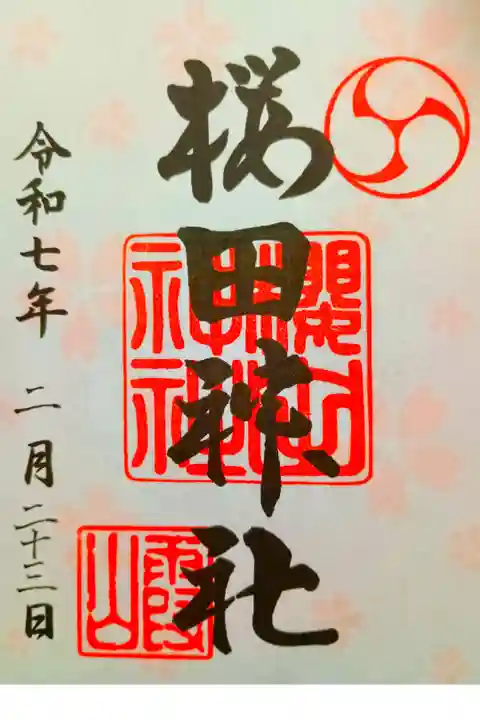 桜田神社
令和七年 二月二十三日
霞山